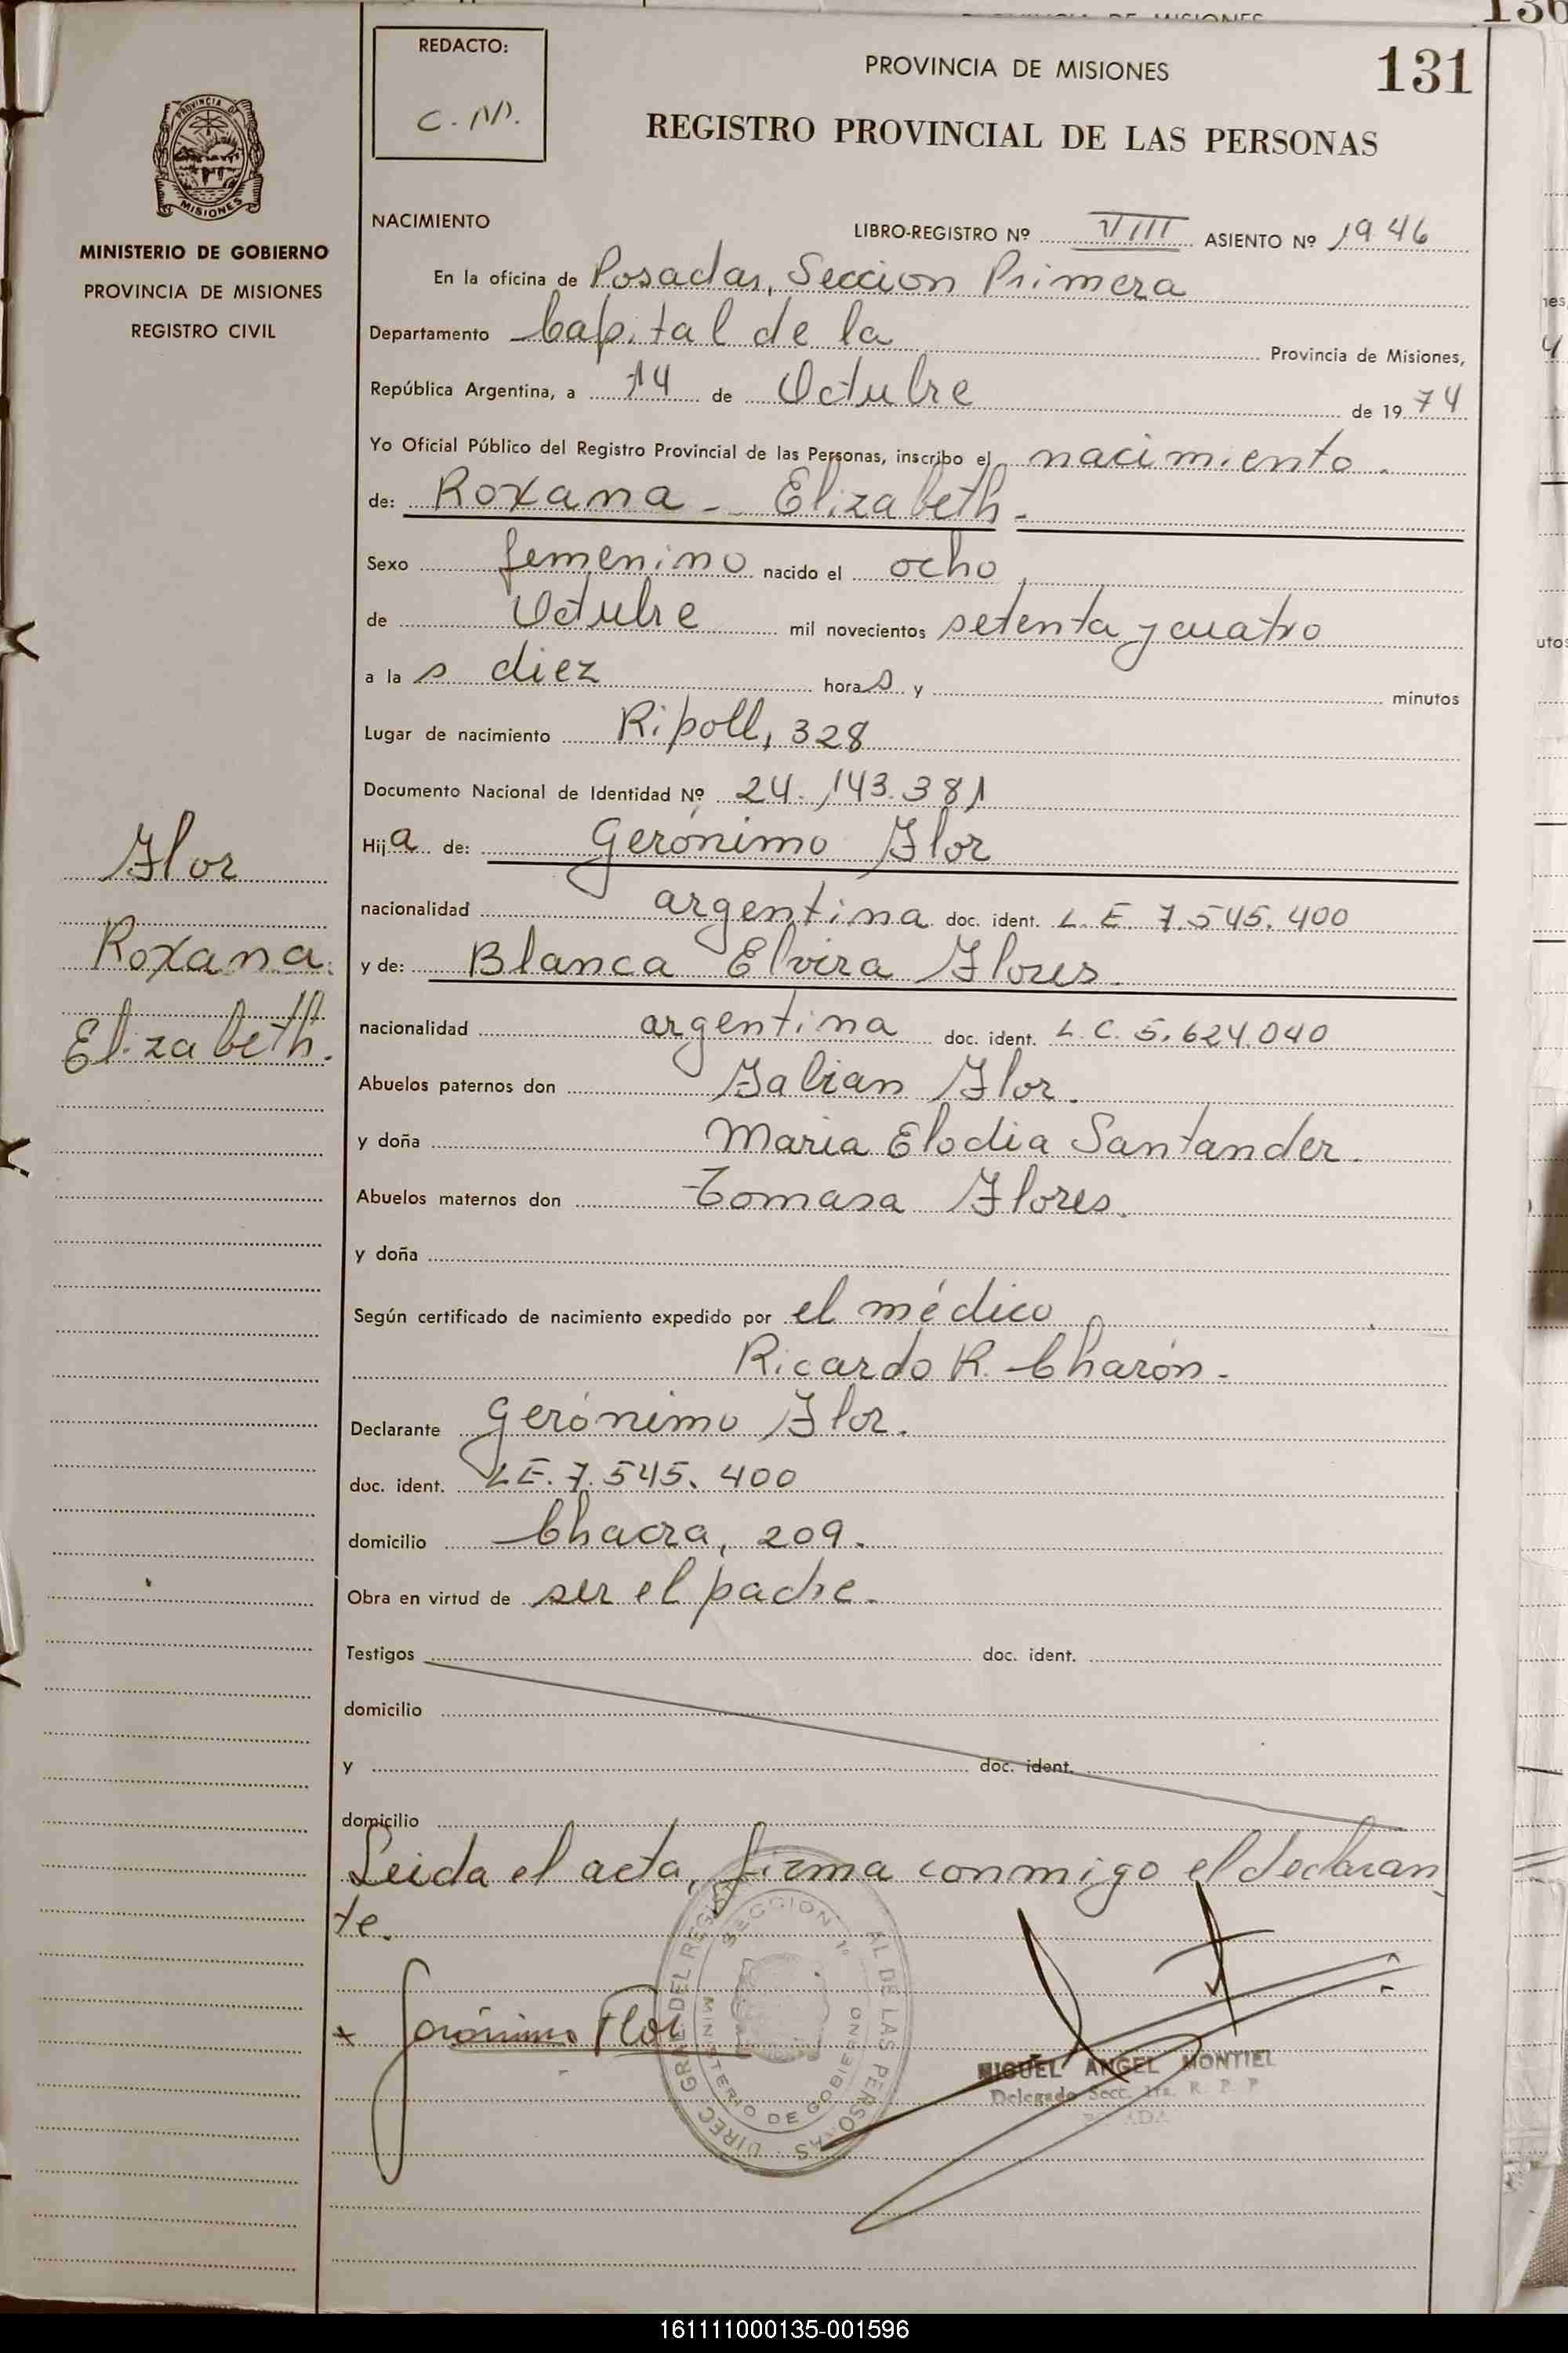 136
PROVINCIA DE MISIONES
REDACTO:
PROVINCIA DE MISIONES
131
REGISTRO PROVINCIAL DE LAS PERSONAS
PROVINCIA DE
MISIONES
MINISTERIO DE GOBIERNO
PROVINCIA DE MISIONES
REGISTRO CIVIL
NACIMIENTO LIBRO-REGISTRO Nº VIII ASIENTO Nº 1946
En la oficina de Posadas, Seccion Primera
Departamento Capital de la Provincia de Misiones,
República Argentina, a 14 de Octubre de 1974
Yo Oficial Público del Registro Provincial de las Personas, inscribo el nacimiento.
de: Roxana - Elizabeth -
Sexo femenino nacido el ocho
de Octubre mil novecientos setenta y cuatro
a la s diez horas y minutos
Lugar de nacimiento Ripoll, 328
Documento Nacional de Identidad Nº 24.143.381
Hija de: Gerónimo Flor
nacionalidad argentina doc. ident. L.E. 7.545.400
y de: Blanca Elvira Flores.
nacionalidad argentina doc. ident. L.C. 5.624.040
Abuelos paternos don Fabian Flor.
y doña Maria Elodia Santander.
Abuelos maternos don Tomasa Flores.
y doña
Según certificado de nacimiento expedido por el médico
Ricardo R. Charón.
Declarante Gerónimo Flor.
doc. ident. L.E. 7.545.400
domicilio Chacra, 209.
Obra en virtud de ser el padre.
Testigos doc. ident.
domicilio
y doc. ident.
domicilio
Leida el acta, firma conmigo el declaran
te.
Flor
Roxana
Elizabeth.
Gerónimo Flor
SECCION 1º
MINISTERIO DE GOBIERNO
MIGUEL ANGEL MONTIEL
Delegado Secc. 1ra. R. P. P.
161111000135-001596